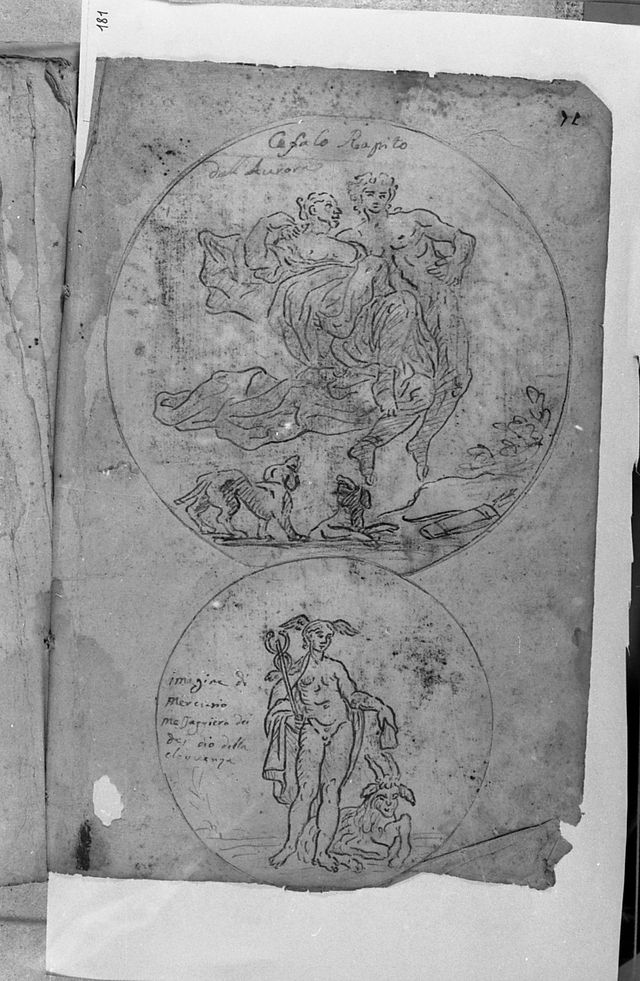 181
Cefalo Rapito
dall'Aurora
imagine di
Mercurio
messaggiero dei
dei dio della
eloquenza